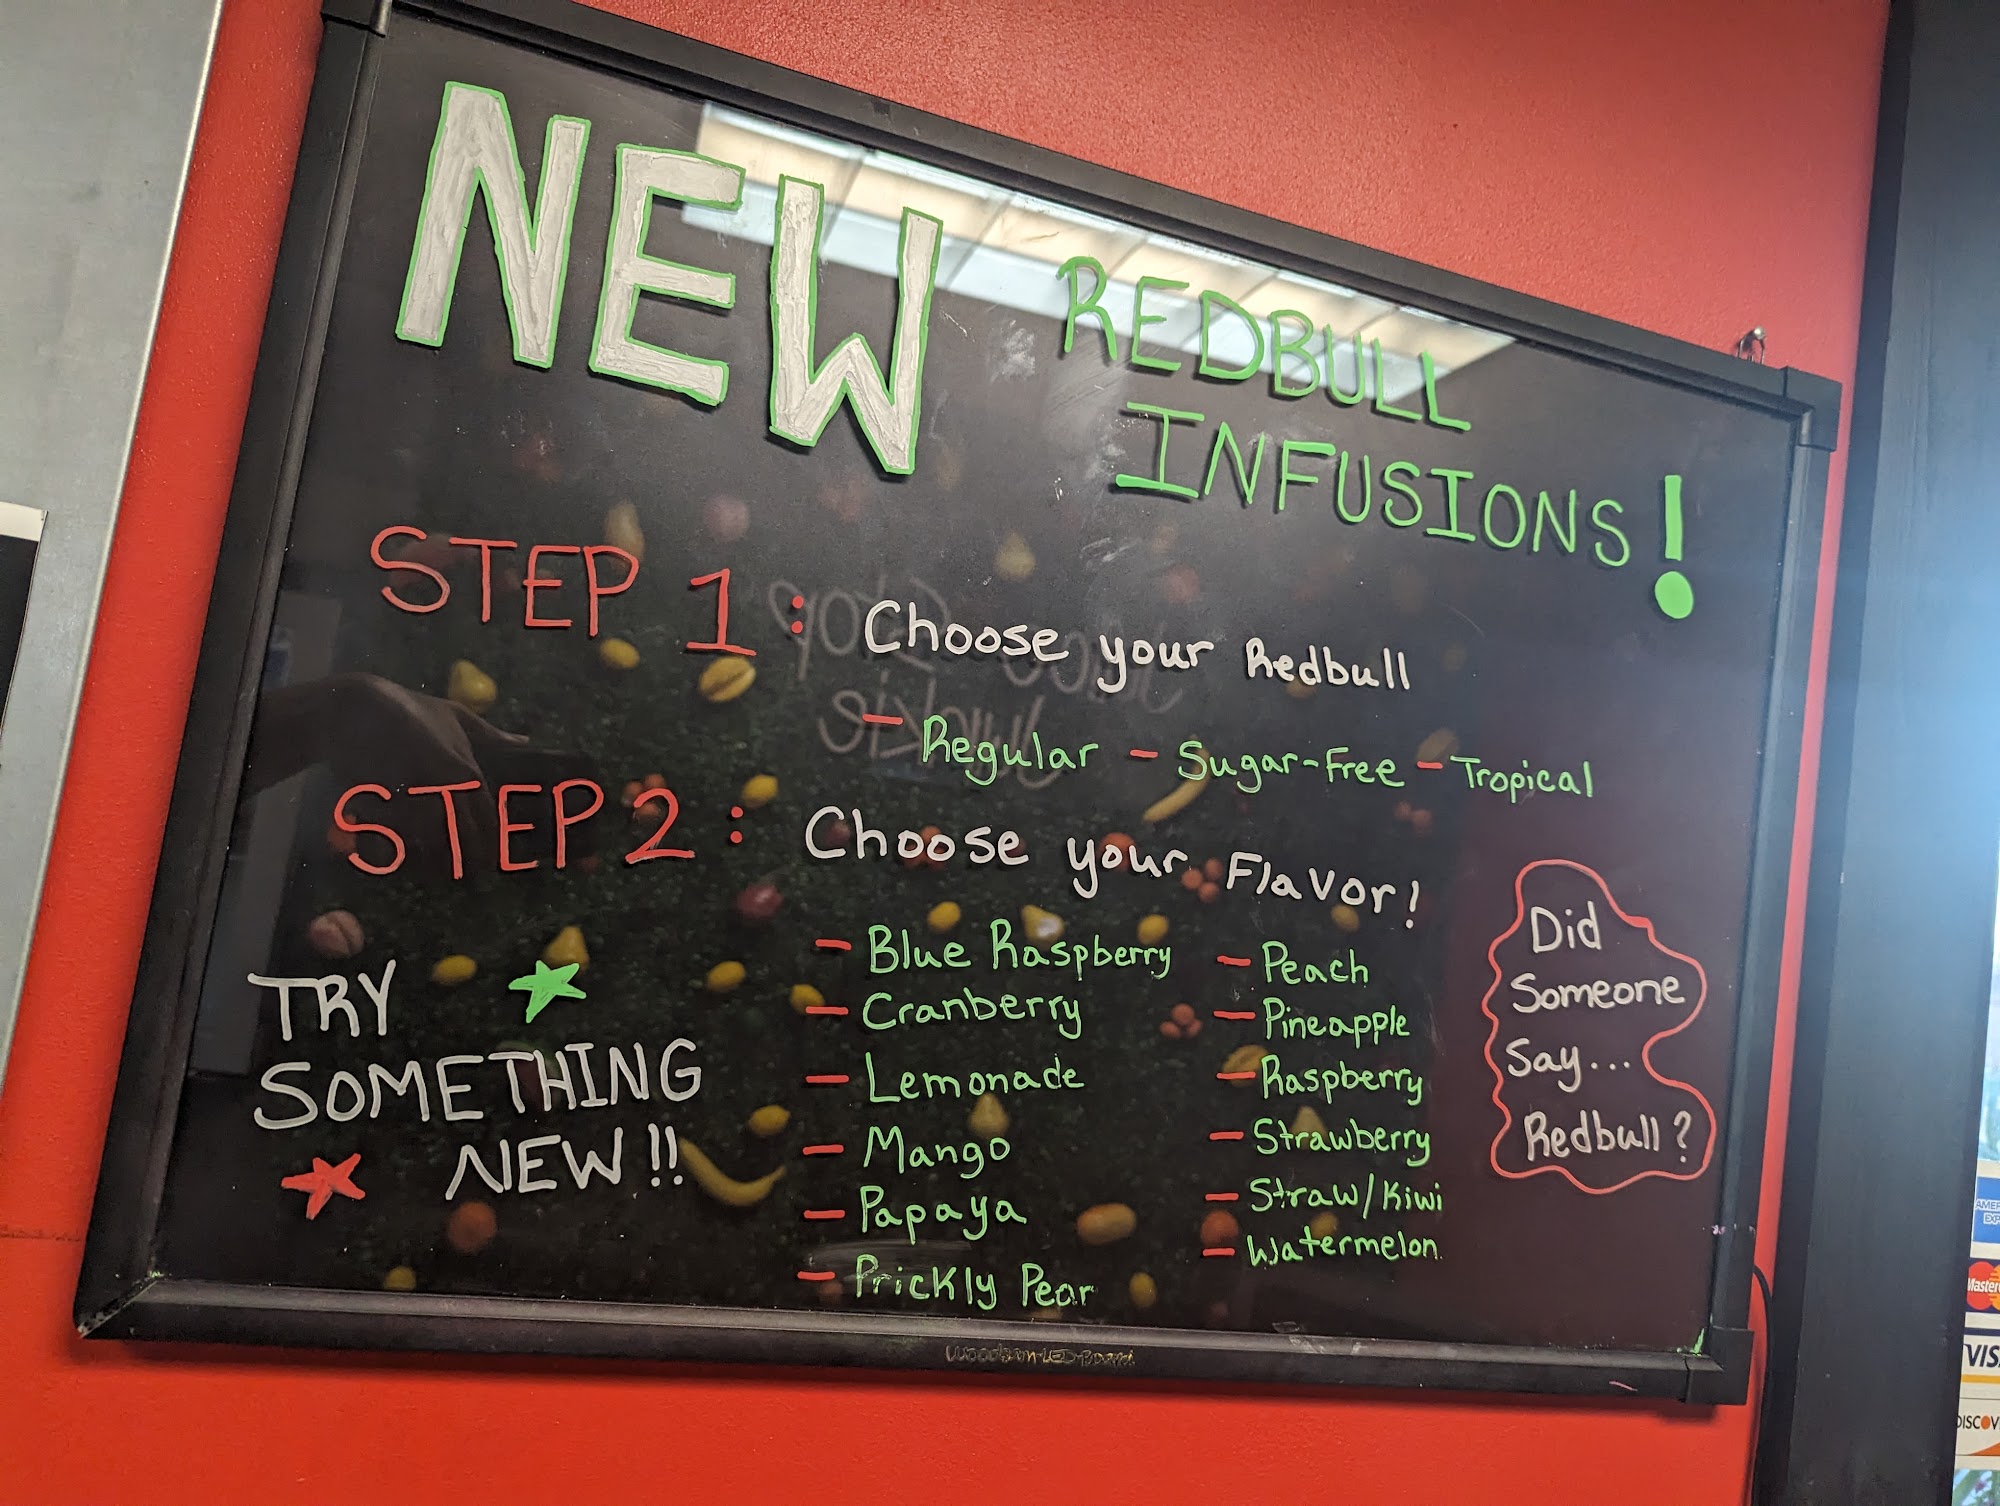 NEW
REDBULL
INFUSIONS!
STEP 1: Choose your Redbull
- Regular - Sugar-Free - Tropical
STEP 2: Choose your Flavor!
- Blue Raspberry
- Cranberry
- Lemonade
- Mango
- Papaya
- Prickly Pear
- Peach
- Pineapple
- Raspberry
- Strawberry
- Straw/Kiwi
- Watermelon
TRY
SOMETHING
NEW!!
Did
Someone
Say...
Redbull?
VIS
DISCOV